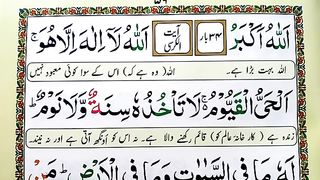 اَللّٰهُ اَكْبَرُ ۳۴ بار آیت الکرسی اَللّٰهُ لَاۤ اِلٰهَ اِلَّا هُوَ ۚ
اللہ بہت بڑا ہے۔ اللہ (وہ ہے کہ) اس کے سوا کوئی معبود نہیں
اَلْحَیُّ الْقَیُّوْمُ ۚ لَا تَاْخُذُهٗ سِنَةٌ وَّلَا نَوْمٌ ؕ
زندہ ہے (کارخانۂ عالم کو) قائم رکھنے والا ہے۔ نہ اس کو اونگھ آتی ہے اور نہ نیند
لَهٗ مَا فِی السَّمٰوٰتِ وَمَا فِی الْاَرْضِ ؕ مَنْ